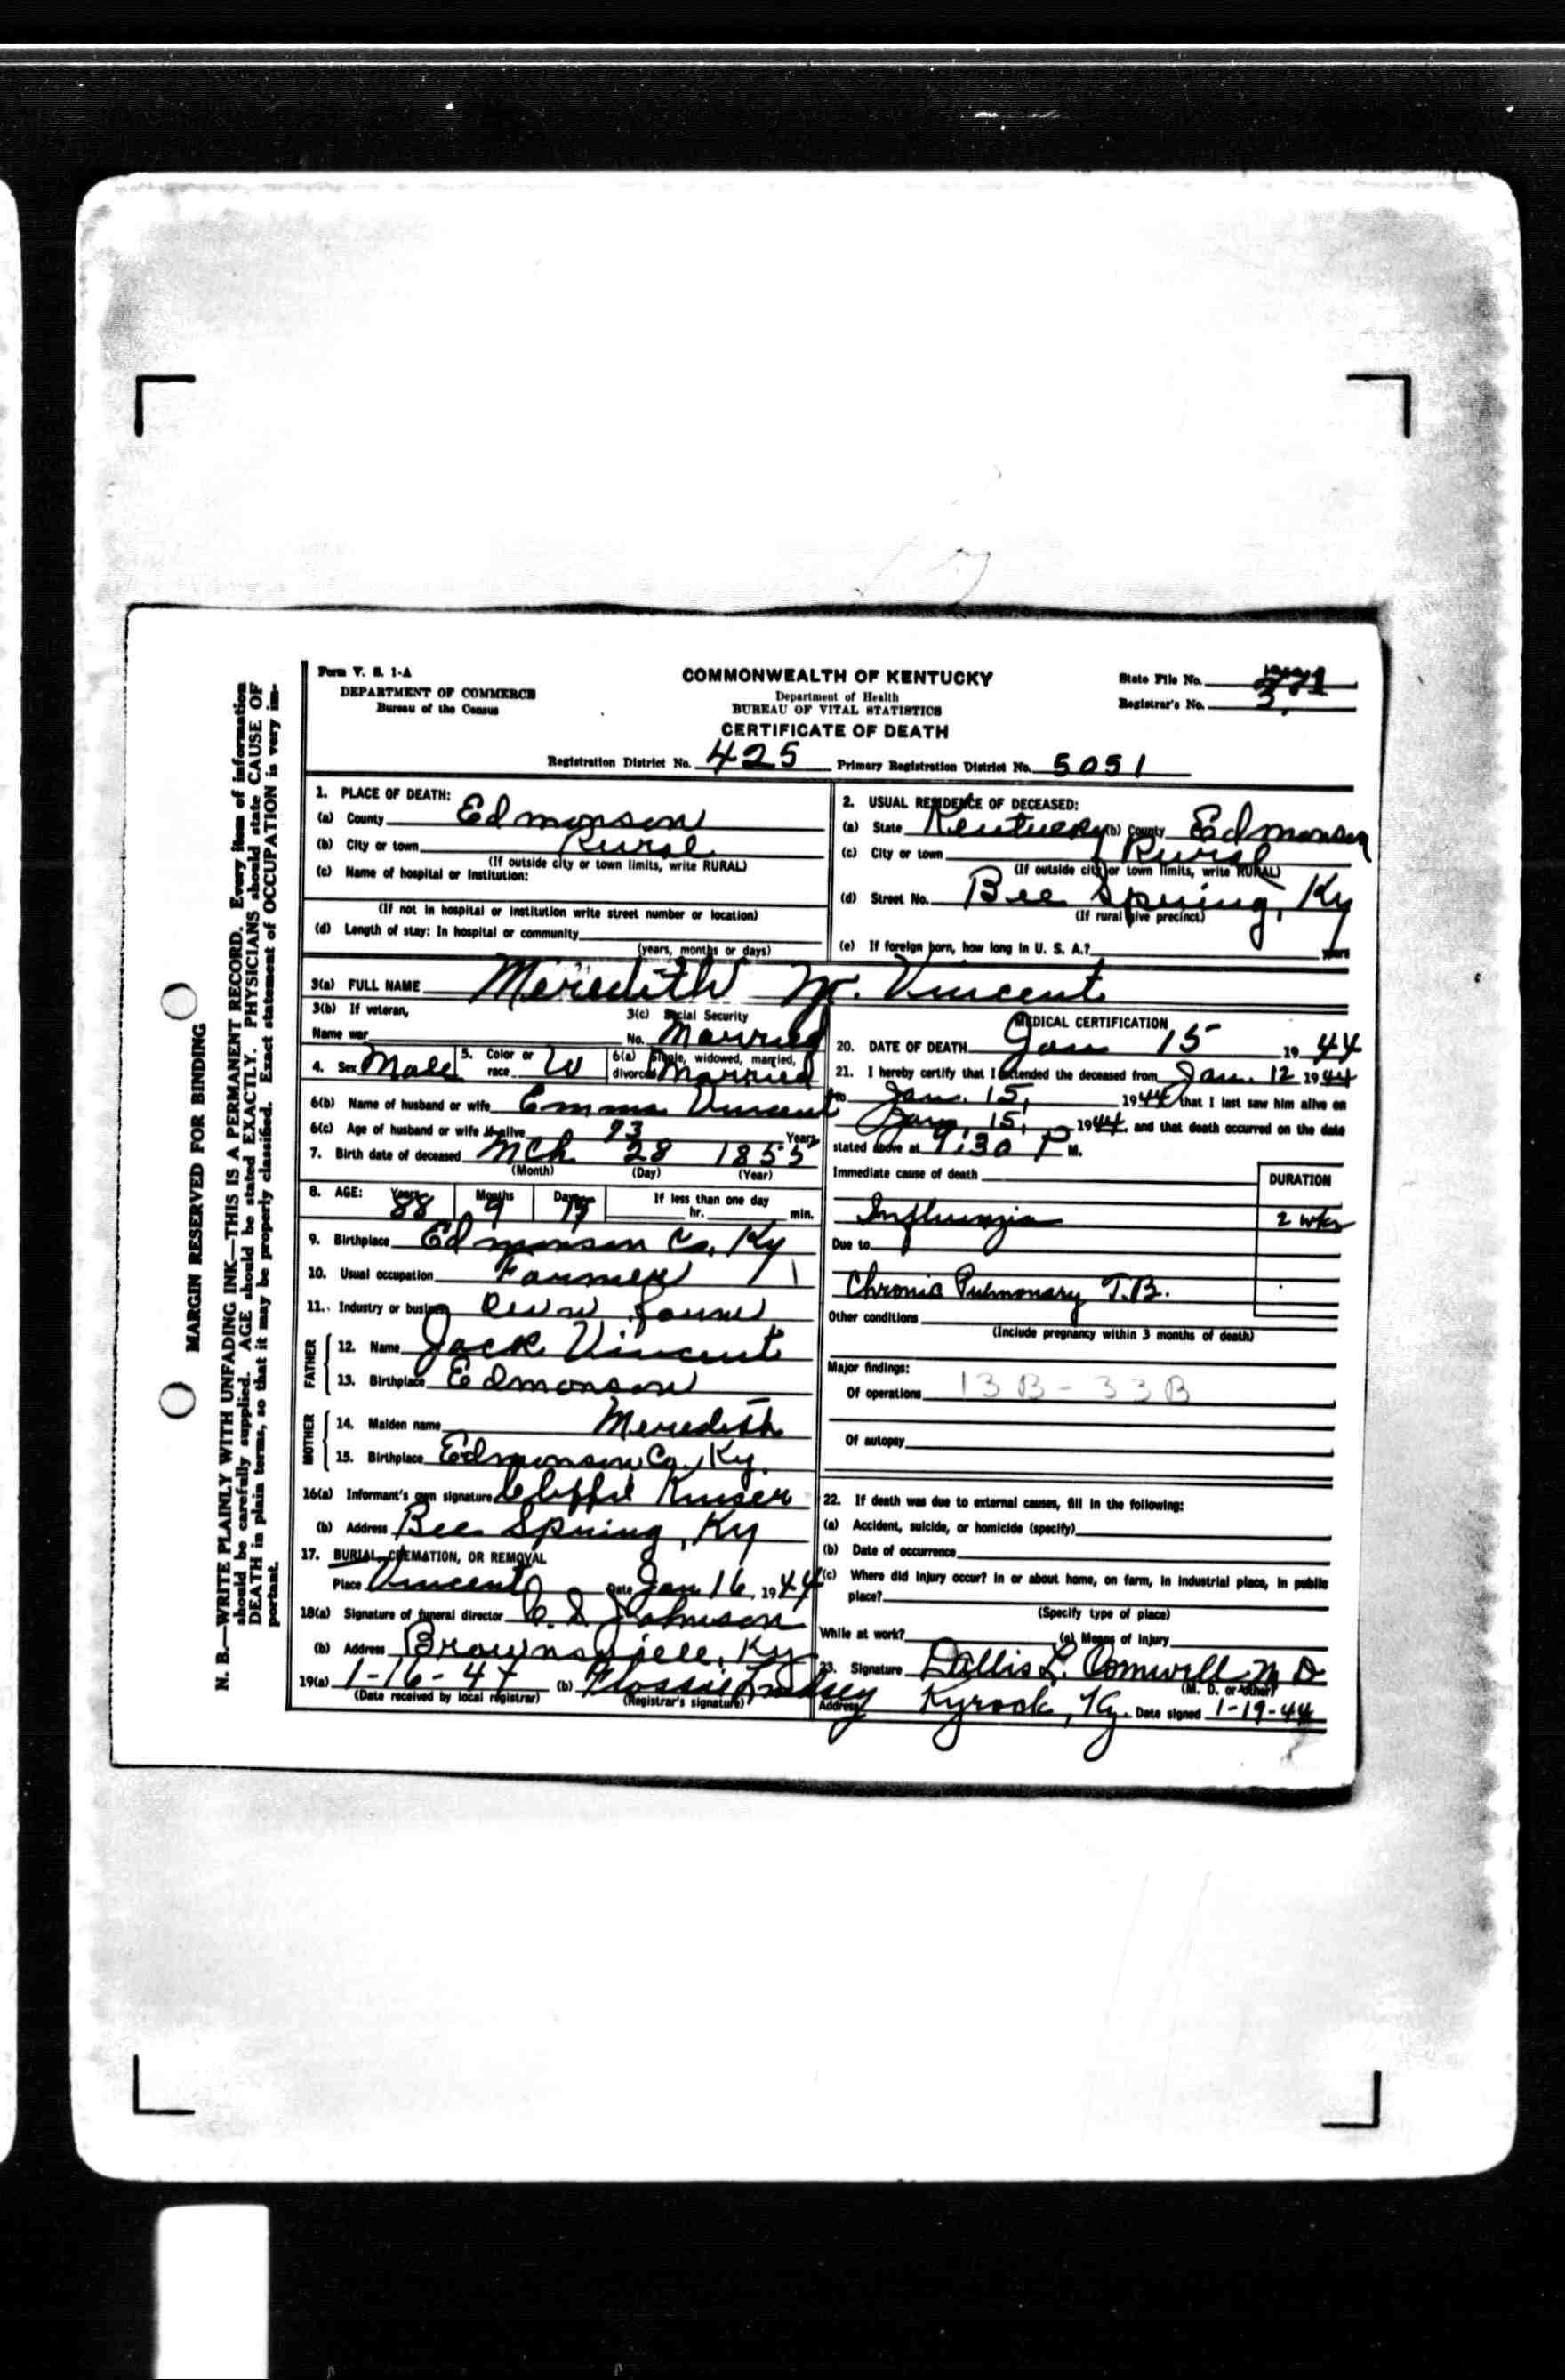 Form V. S. 1-A
DEPARTMENT OF COMMERCE
Bureau of the Census
COMMONWEALTH OF KENTUCKY
Department of Health
BUREAU OF VITAL STATISTICS
CERTIFICATE OF DEATH
State File No.
Registrar's No. 3.
Registration District No. 425 Primary Registration District No. 5051
1. PLACE OF DEATH:
(a) County Edmonson
(b) City or town Rural
(If outside city or town limits, write RURAL)
(c) Name of hospital or Institution:
(If not in hospital or institution write street number or location)
(d) Length of stay: In hospital or community
(years, months or days)
2. USUAL RESIDENCE OF DECEASED:
(a) State Kentucky (b) County Edmonson
(c) City or town Rural
(If outside city or town limits, write RURAL)
(d) Street No. Bee Spring, Ky
(If rural give precinct)
(e) If foreign born, how long in U. S. A.? years
3(a) FULL NAME Meredith Vincent
3(b) If veteran,
Name war
3(c) Social Security
No. Married
4. Sex Male 5. Color or race W 6(a) Single, widowed, married, divorced Married
6(b) Name of husband or wife Emma Vincent
6(c) Age of husband or wife if alive 73 Years
7. Birth date of deceased Mch 28 1855
(Month) (Day) (Year)
8. AGE: Years 88 Months 9 Days If less than one day
hr. min.
9. Birthplace Edmonson Co, Ky
10. Usual occupation Farmer
11. Industry or business Own farm
FATHER
12. Name Jack Vincent
13. Birthplace Edmonson
MOTHER
14. Maiden name Meredith
15. Birthplace Edmonson Co., Ky.
16(a) Informant's own signature
(b) Address Bee Spring, Ky
17. BURIAL, CREMATION, OR REMOVAL
Place Vincent Date Jan 16, 1944
18(a) Signature of funeral director C. S. Johnson
(b) Address Brownsville, Ky
19(a) 1-16-44 (b) Flossie Lindsey
(Date received by local registrar) (Registrar's signature)
MEDICAL CERTIFICATION
20. DATE OF DEATH Jan 15 1944
21. I hereby certify that I attended the deceased from Jan. 12 1944
to Jan. 15, 1944 that I last saw him alive on
Jan. 15, 1944, and that death occurred on the date
stated above at 9:30 P M.
Immediate cause of death
DURATION
Influenzia 2 wks
Due to
Chronic Pulmonary T.B.
Other conditions
(Include pregnancy within 3 months of death)
Major findings:
Of operations 13B-33B
Of autopsy
22. If death was due to external causes, fill in the following:
(a) Accident, suicide, or homicide (specify)
(b) Date of occurrence
(c) Where did injury occur? In or about home, on farm, in industrial place, in public
place?
(Specify type of place)
While at work? (e) Means of injury
23. Signature Dallis L. M D
(M. D. or other)
Address Kyrock, Ky. Date signed 1-19-44
MARGIN RESERVED FOR BINDING
N. B.—WRITE PLAINLY WITH UNFADING INK—THIS IS A PERMANENT RECORD. Every item of information
should be carefully supplied. AGE should be stated EXACTLY. PHYSICIANS should state CAUSE OF
DEATH in plain terms, so that it may be properly classified. Exact statement of OCCUPATION is very im-
portant.